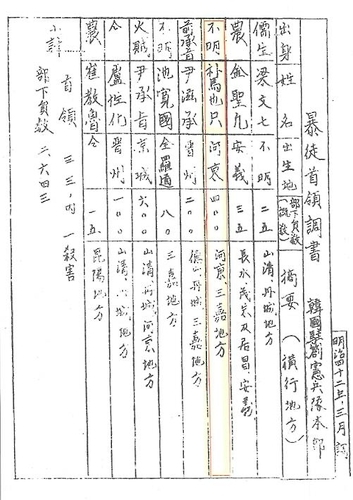 暴徒首領調書
韓國駐箚憲兵隊本部
明治四十二年、三月調
出身 姓名 出生地 部下負數(概數) 摘要(橫行地方)
儒生 梁文七 不明 二五 山淸、丹城地方
農 金聖九 安義 三五 長水茂朱及居昌安義
不明 朴馬也只 河東 四〇〇 河東、三嘉地方
前承旨 尹滋承 晋州 二〇〇 山、丹城、三嘉地方
不明 池寬國 全羅道 八〇 三嘉地方
火賊 尹承旨 京城 六〇〇 山淸、丹城、河東地方
仝 盧性化 晋州 一〇〇 山淸、城地方
農 崔敎魯 仝 一五 昆陽地方
小計 首領 三三、內一殺害
部下負數 二、六四三